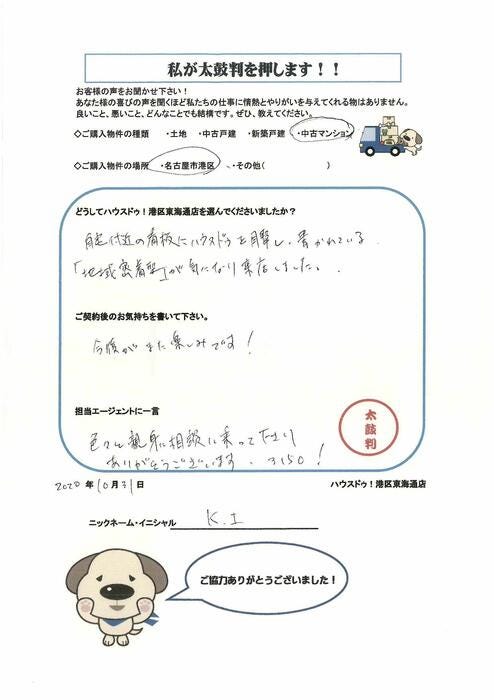 私が太鼓判を押します！！
お客様の声をお聞かせ下さい！
あなた様の喜びの声を聞くほど私たちの仕事に情熱とやりがいを与えてくれる物はありません。
良いこと、悪いこと、どんなことでも結構です。ぜひ、教えてください。
◇ご購入物件の種類 ・土地 ・中古戸建 ・新築戸建 ・中古マンション
◇ご購入物件の場所 ・名古屋市港区 ・その他( )
どうしてハウスドゥ！港区東海通店を選んでくださいましたか？
自宅付近の看板にハウスドゥを目撃し、書かれている
「地域密着型」が気になり来店しました。
ご契約後のお気持ちを書いて下さい。
今後がまた楽しみです！
担当エージェントに一言
色々と親身に相談に乗って下さり
ありがとうございます。3150！
太鼓判
2020 年 10 月 31 日
ハウスドゥ！港区東海通店
ニックネーム・イニシャル K.I
ご協力ありがとうございました！